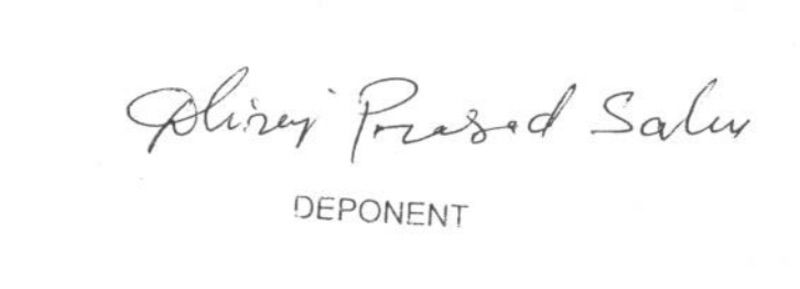 Dhiraj Prasad Sahu
DEPONENT